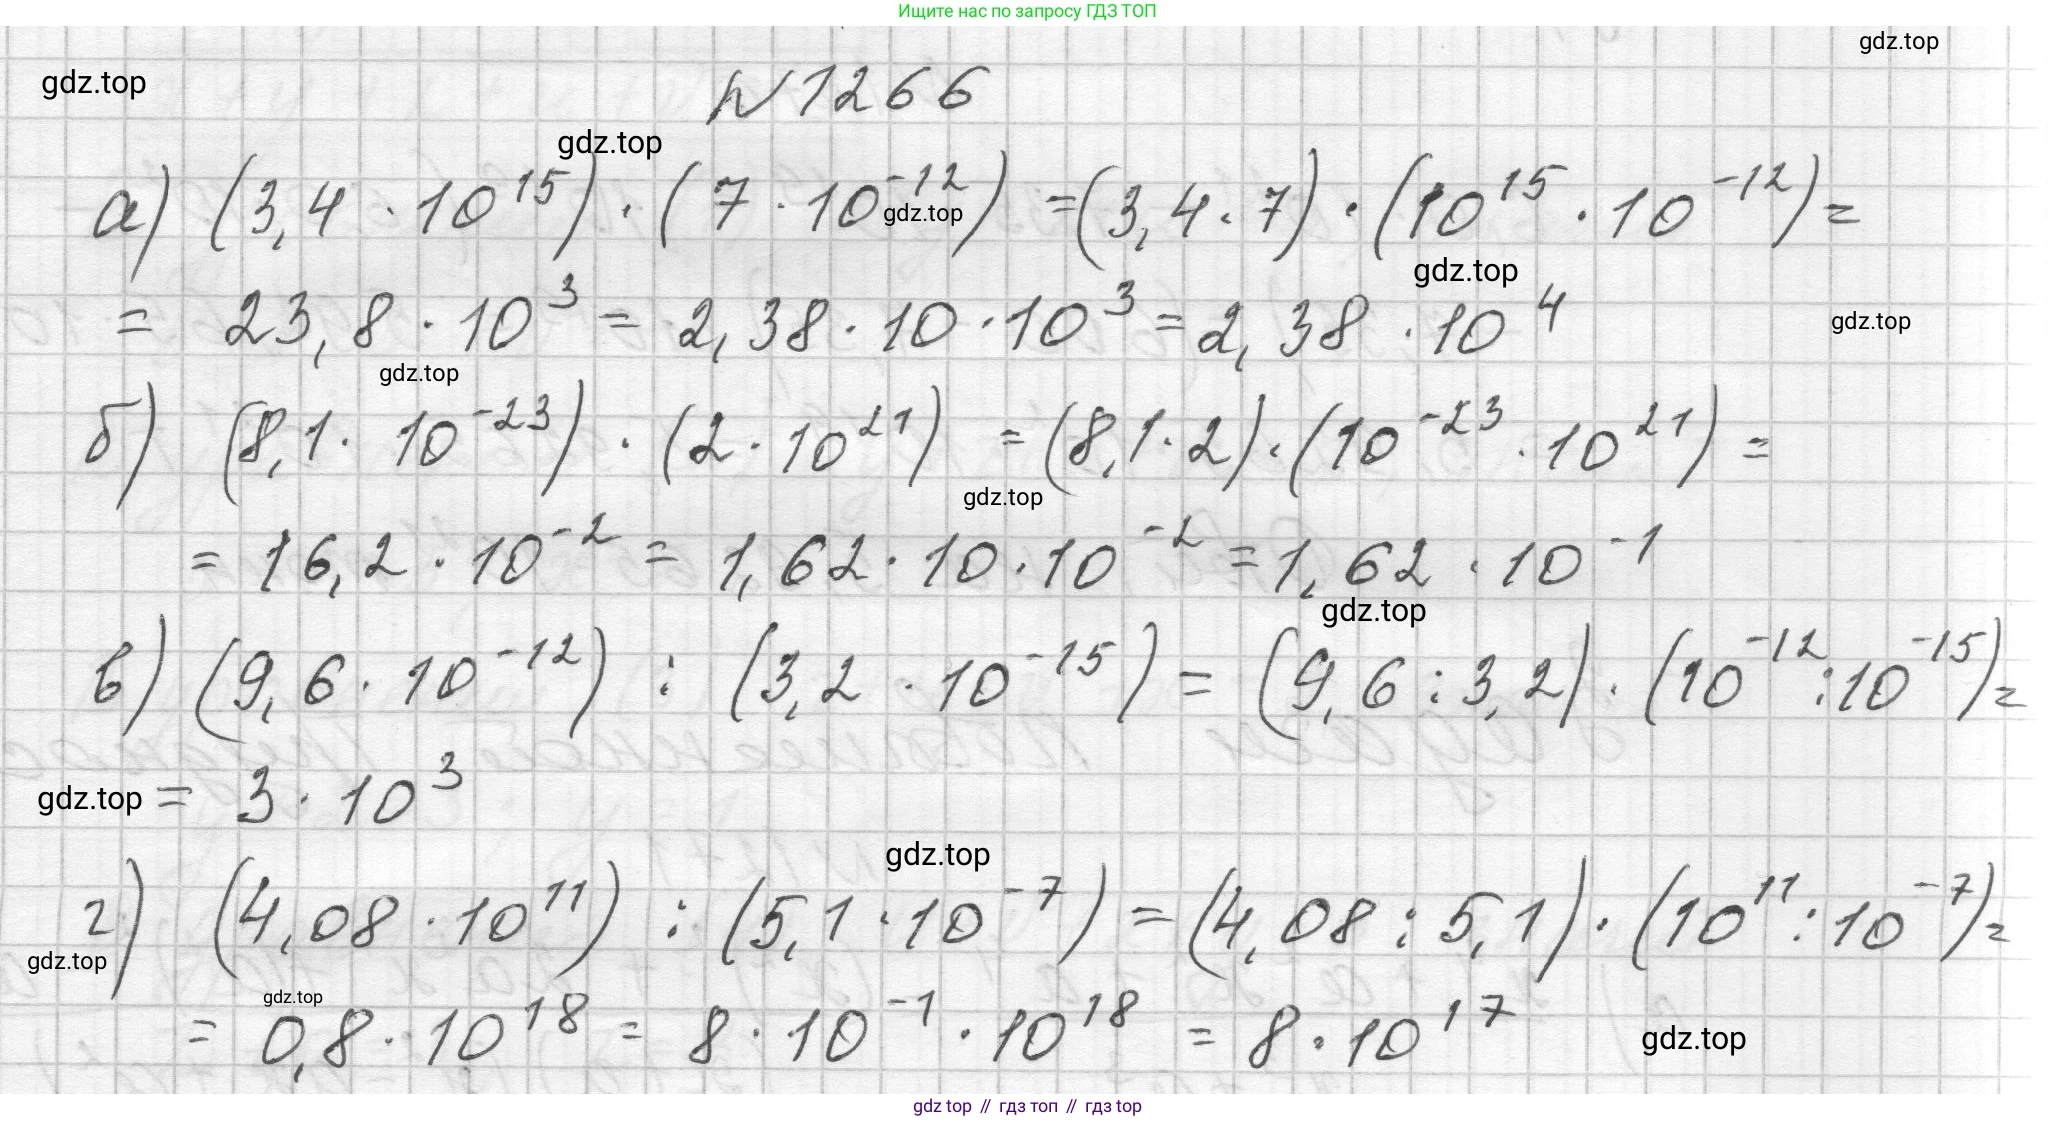 Ищите нас по запросу ГДЗ ТОП
gdz.top
gdz.top
№ 1266
gdz.top
а) (3,4 · 10^15) · (7 · 10^-12) = (3,4 · 7) · (10^15 · 10^-12) =
gdz.top
gdz.top
= 23,8 · 10^3 = 2,38 · 10 · 10^3 = 2,38 · 10^4
gdz.top
gdz.top
б) (8,1 · 10^-23) · (2 · 10^21) = (8,1 · 2) · (10^-23 · 10^21) =
gdz.top
= 16,2 · 10^-2 = 1,62 · 10 · 10^-2 = 1,62 · 10^-1
gdz.top
в) (9,6 · 10^-12) : (3,2 · 10^-15) = (9,6 : 3,2) · (10^-12 : 10^-15) =
gdz.top
= 3 · 10^3
gdz.top
г) (4,08 · 10^11) : (5,1 · 10^-7) = (4,08 : 5,1) · (10^11 : 10^-7) =
gdz.top
gdz.top
= 0,8 · 10^18 = 8 · 10^-1 · 10^18 = 8 · 10^17
gdz.top
gdz top // гдз топ // гдз top